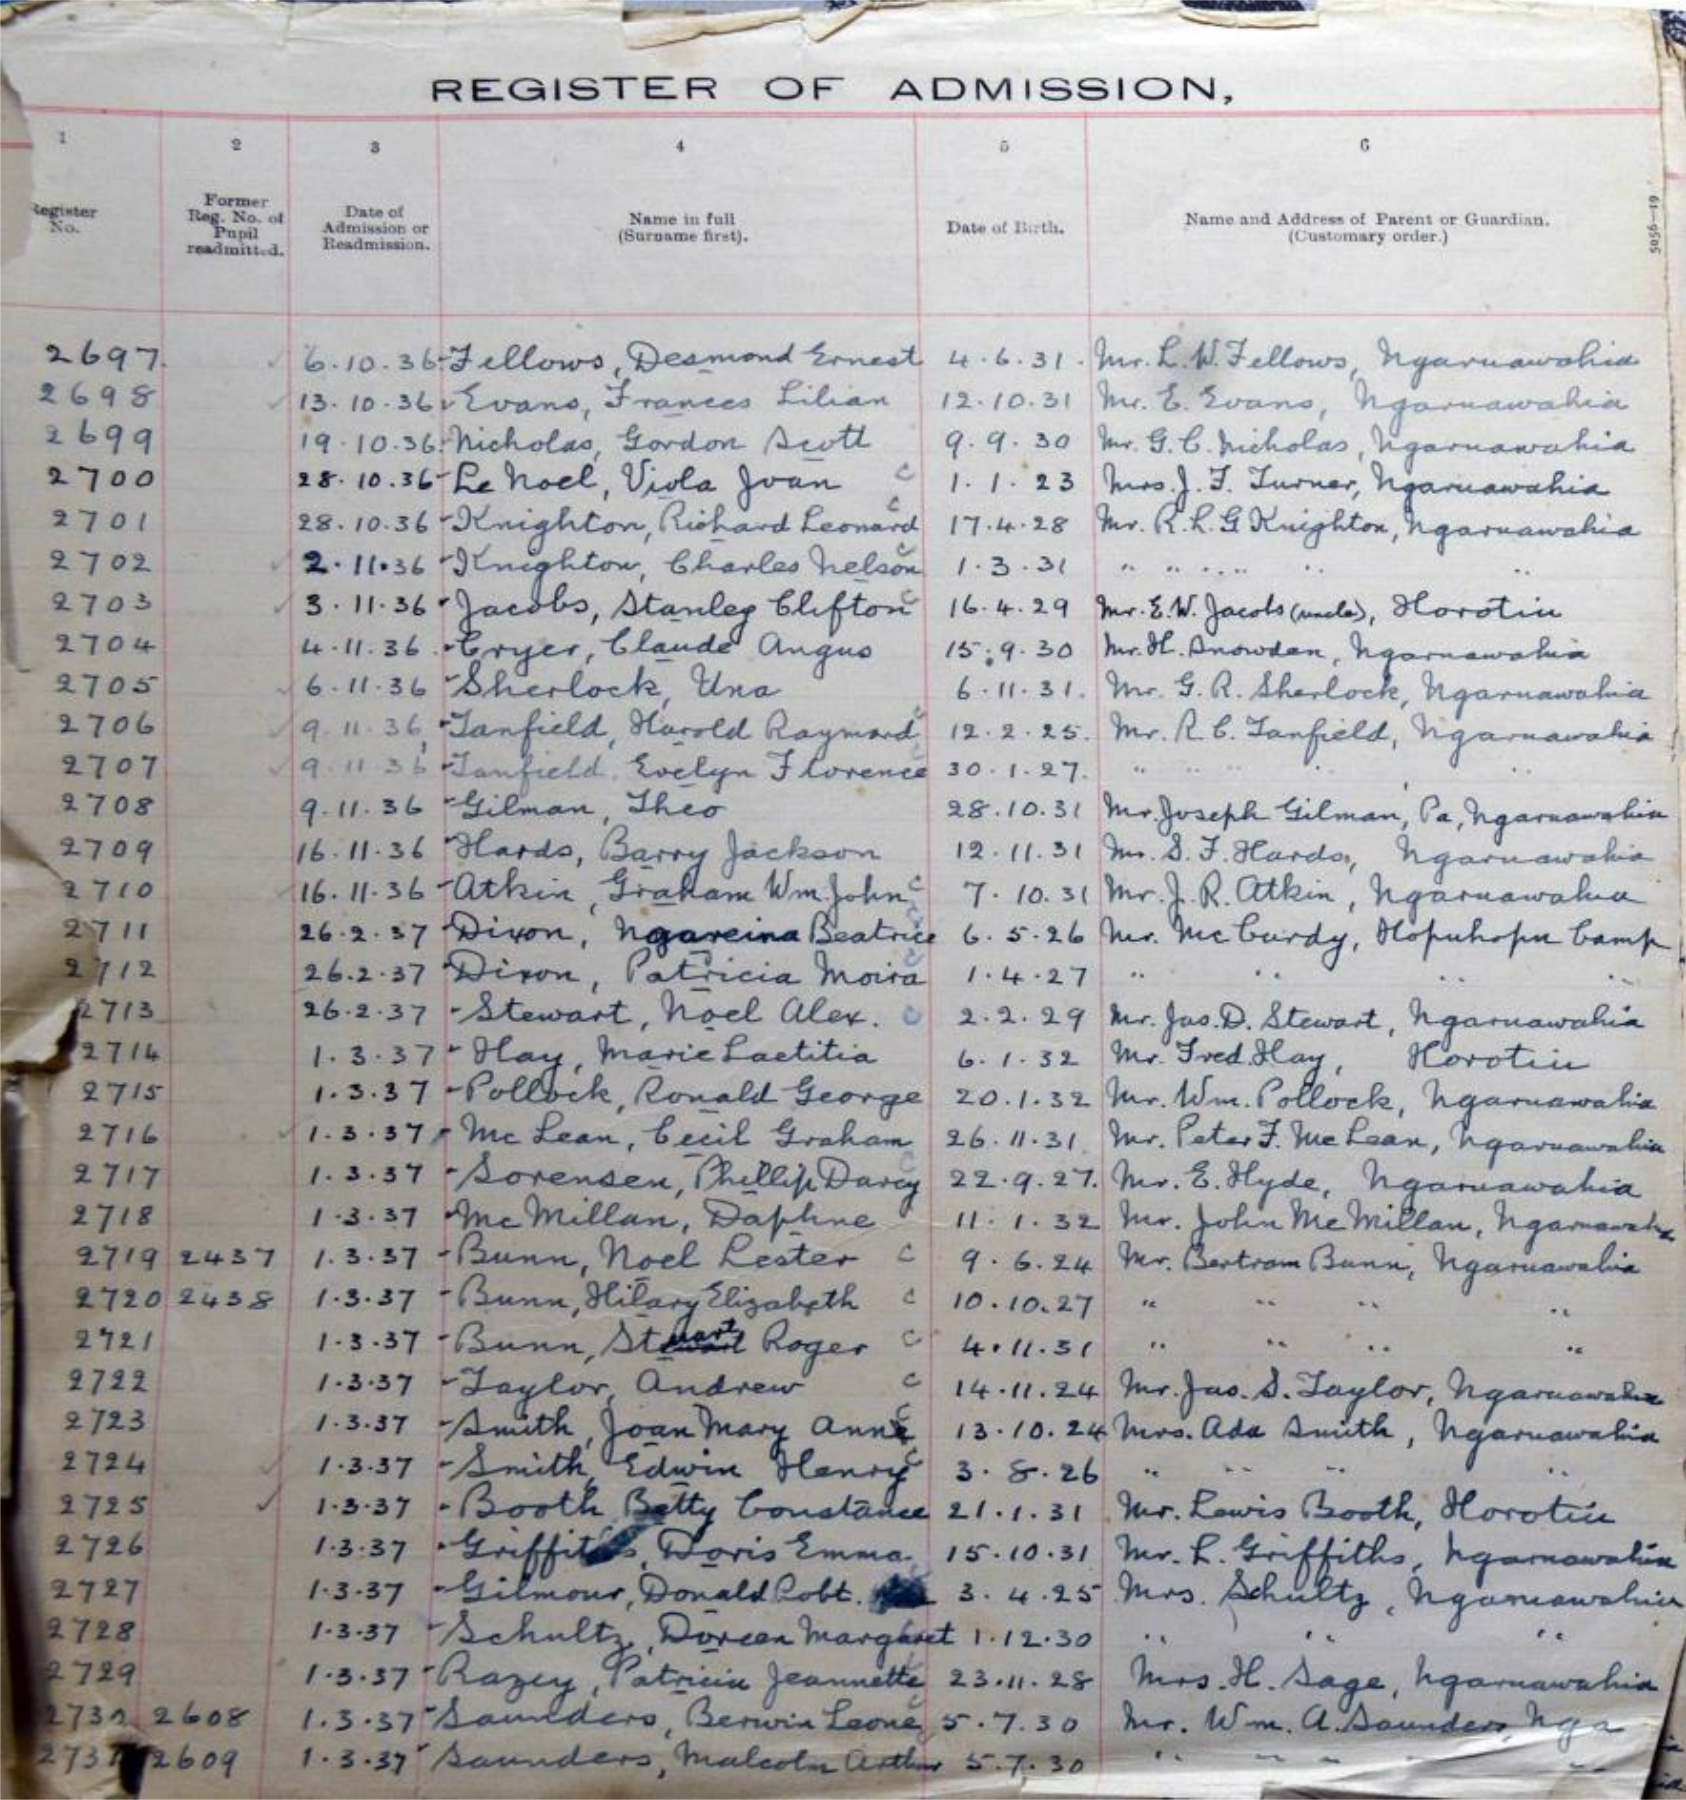 REGISTER OF ADMISSION,
1 2 3 4 5 6
Register No. Former Reg. No. of Pupil readmitted. Date of Admission or Readmission. Name in full (Surname first). Date of Birth. Name and Address of Parent or Guardian. (Customary order.)
5056—19
2697 6.10.36 Fellows, Desmond Ernest 4.6.31 Mr. L. W. Fellows, Ngaruawahia
2698 13.10.36 Evans, Frances Lilian 12.10.31 Mr. E. Evans, Ngaruawahia
2699 19.10.36 Nicholas, Gordon Scott 9.9.30 Mr. G. C. Nicholas, Ngaruawahia
2700 28.10.36 Le Noel, Viola Joan c 1.1.23 Mrs. J. F. Turner, Ngaruawahia
2701 28.10.36 Knighton, Richard Leonard c 17.4.28 Mr. R. L. G Knighton, Ngaruawahia
2702 2.11.36 Knighton, Charles Nelson c 1.3.31 " " " " " "
2703 3.11.36 Jacobs, Stanley Clifton c 16.4.29 Mr. E. W. Jacobs (uncle), Horotiu
2704 4.11.36 Cryer, Claude Angus 15.9.30 Mr. H. Snowden, Ngaruawahia
2705 6.11.36 Sherlock, Una 6.11.31. Mr. G. R. Sherlock, Ngaruawahia
2706 9.11.36 Tanfield, Harold Raymond c 12.2.25. Mr. R. C. Tanfield, Ngaruawahia
2707 9.11.36 Tanfield, Evelyn Florence c 30.1.27. " " " " "
2708 9.11.36 Gilman, Theo 28.10.31 Mr Joseph Gilman, Pa, Ngaruawahia
2709 16.11.36 Hards, Barry Jackson 12.11.31 Mr. S. F. Hards, Ngaruawahia
2710 16.11.36 Atkin, Graham Wm. John c 7.10.31 Mr. J. R. Atkin, Ngaruawahia
2711 26.2.37 Dixon, Ngareina Beatrice c 6.5.26 Mr. McCurdy, Hopuhopu Camp
2712 26.2.37 Dixon, Patricia Moira c 1.4.27 " " " "
2713 26.2.37 Stewart, Noel Alex. c 2.2.29 Mr. Jas. D. Stewart, Ngaruawahia
2714 1.3.37 Hay, Marie Laetitia 6.1.32 Mr. Fred. Hay, Horotiu
2715 1.3.37 Pollock, Ronald George 20.1.32 Mr. Wm. Pollock, Ngaruawahia
2716 1.3.37 McLean, Cecil Graham 26.11.31 Mr. Peter F. McLean, Ngaruawahia
2717 1.3.37 Sorensen, Phillip Darcy c 22.9.27. Mr. E. Hyde, Ngaruawahia
2718 1.3.37 McMillan, Daphne 11.1.32 Mr. John McMillan, Ngaruawahia
2719 2437 1.3.37 Bunn, Noel Lester c 9.6.24 Mr. Bertram Bunn, Ngaruawahia
2720 2438 1.3.37 Bunn, Hilary Elizabeth c 10.10.27 " " " "
2721 1.3.37 Bunn, Stuart Roger c 4.11.31 " " " "
2722 1.3.37 Taylor, Andrew c 14.11.24 Mr. Jas. S. Taylor, Ngaruawahia
2723 1.3.37 Smith, Joan Mary Anne c 13.10.24 Mrs. Ada Smith, Ngaruawahia
2724 1.3.37 Smith, Edwin Henry c 3.8.26 " " " "
2725 1.3.37 Booth Betty Constance 21.1.31 Mr. Lewis Booth, Horotiu
2726 1.3.37 Griffiths, Doris Emma. 15.10.31 Mr. L. Griffiths, Ngaruawahia
2727 1.3.37 Gilmour, Donald Robt. 3.4.25 Mrs. Schultz, Ngaruawahia
2728 1.3.37 Schultz, Doreen Margaret 1.12.30 " " "
2729 1.3.37 Razey, Patricia Jeannette 23.11.28 Mrs. H. Sage, Ngaruawahia
2730 2608 1.3.37 Saunders, Berwin Leone c 5.7.30 Mr. Wm. A. Saunders, Nga
2731 2609 1.3.37 Saunders, Malcolm Arthur 5.7.30 " " " " "